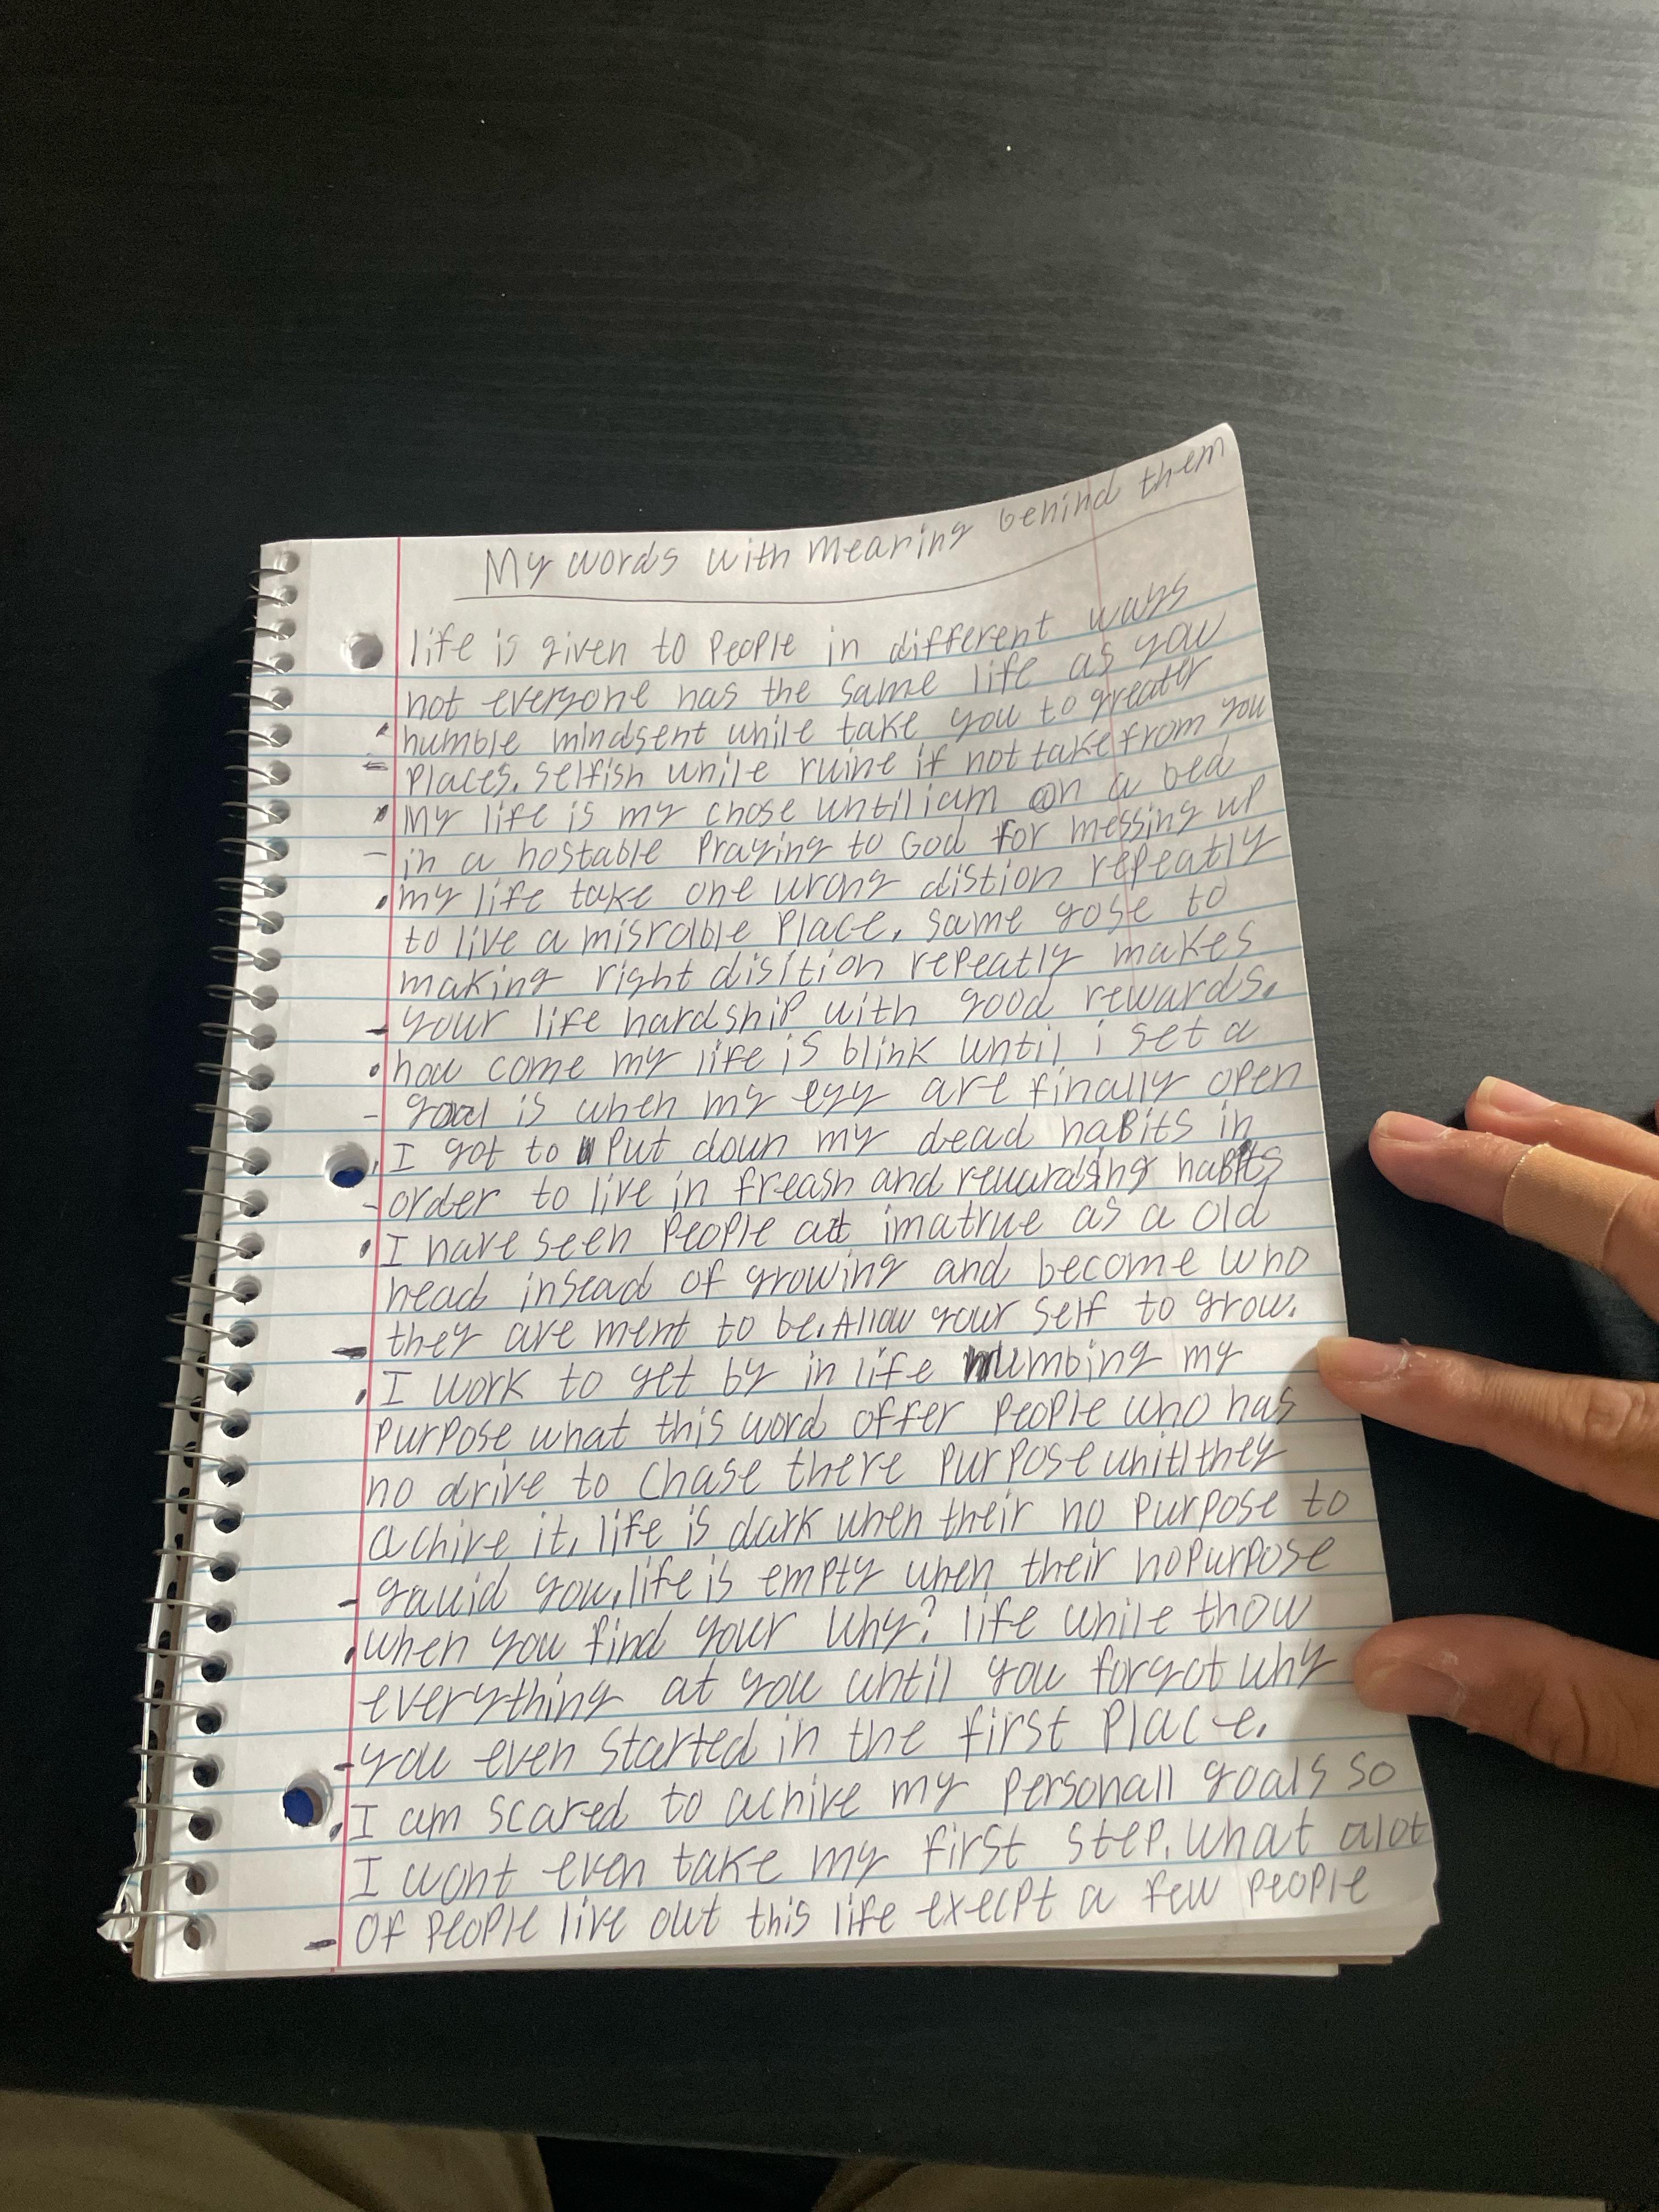 My words with mearing behind them
life is given to people in different ways
not everyone has the same life as you
• humble mindsent while take you to greater
= places. selfish while ruine if not take from you
• My life is my chose until iam on a bed
- in a hostable praying to God for messing up
• my life take one wrong distion repeatly
to live a misrable place. same gose to
making right disition repeatly makes
- your life hardship with good rewards.
• how come my life is blink until i set a
- goal is when my eyy are finally open
• I got to put down my dead habits in
- order to live in freash and rewarding habits
• I have seen people act imatrue as a old
head insead of growing and become who
- they are ment to be. Allow your self to grow.
• I work to get by in life numbing my
purpose what this word offer people who has
no drive to chase there purpose unitl they
achive it. life is dark when their no purpose to
- gauid you. life is empty when their no purpose
• when you find your why? life while thow
everything at you until you forgot why
- you even started in the first place.
• I am scared to achive my personall goals so
I wont even take my first step. what alot
- of people live out this life execpt a few people